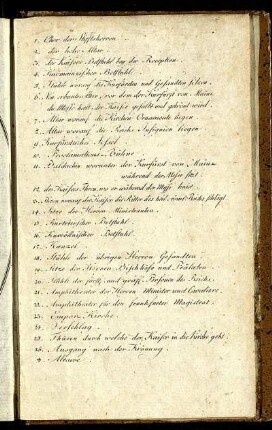 1. Chor der Stiftsherren.
2. der hohe Altar.
3. des Kaisers Betstuhl bey der Reception.
4. Churmainzischer Betstuhl.
5. Stühle worauf die Churfürsten und Gesandten sitzen.
6. Neu erbauter Altar, vor dem der Churfürst von Mainz
die Messe hält, der Kaiser gesalbt und gekrönt wird.
7. Altar worauf die Kirchen Ornamente liegen
8. Altar worauf die Reichs Insignien liegen
9. Churfürstlicher Sessel
10. Proclamations-Bühne.
11. Baldachin worunter der Churfürst von Mainz
während der Messe sitzt.
12. des Kaisers Thron, wo er während der Messe kniet.
13. Thron worauf der Kaiser die Ritter des heil. röm. Reichs schlägt.
14. Sitze der Herren
15. Churtrierischer Betstuhl.
16. Churcöllnischer Betstuhl.
17. Kanzel.
18. Stühle der übrigen Herren Gesandten
19. Sitze der Herren Bischöfe und Prälaten
20. Stühle der fürstl. und gräfl. Personen des Reichs.
21. Amphitheater der Herren Minister und Cavaliere.
22. Amphitheater für den frankfurter Magistrat.
23. Empor-Kirche.
24. Verschlag.
25. Thüren durch welche der Kaiser in die Kirche geht.
26. Ausgang nach der Krönung.